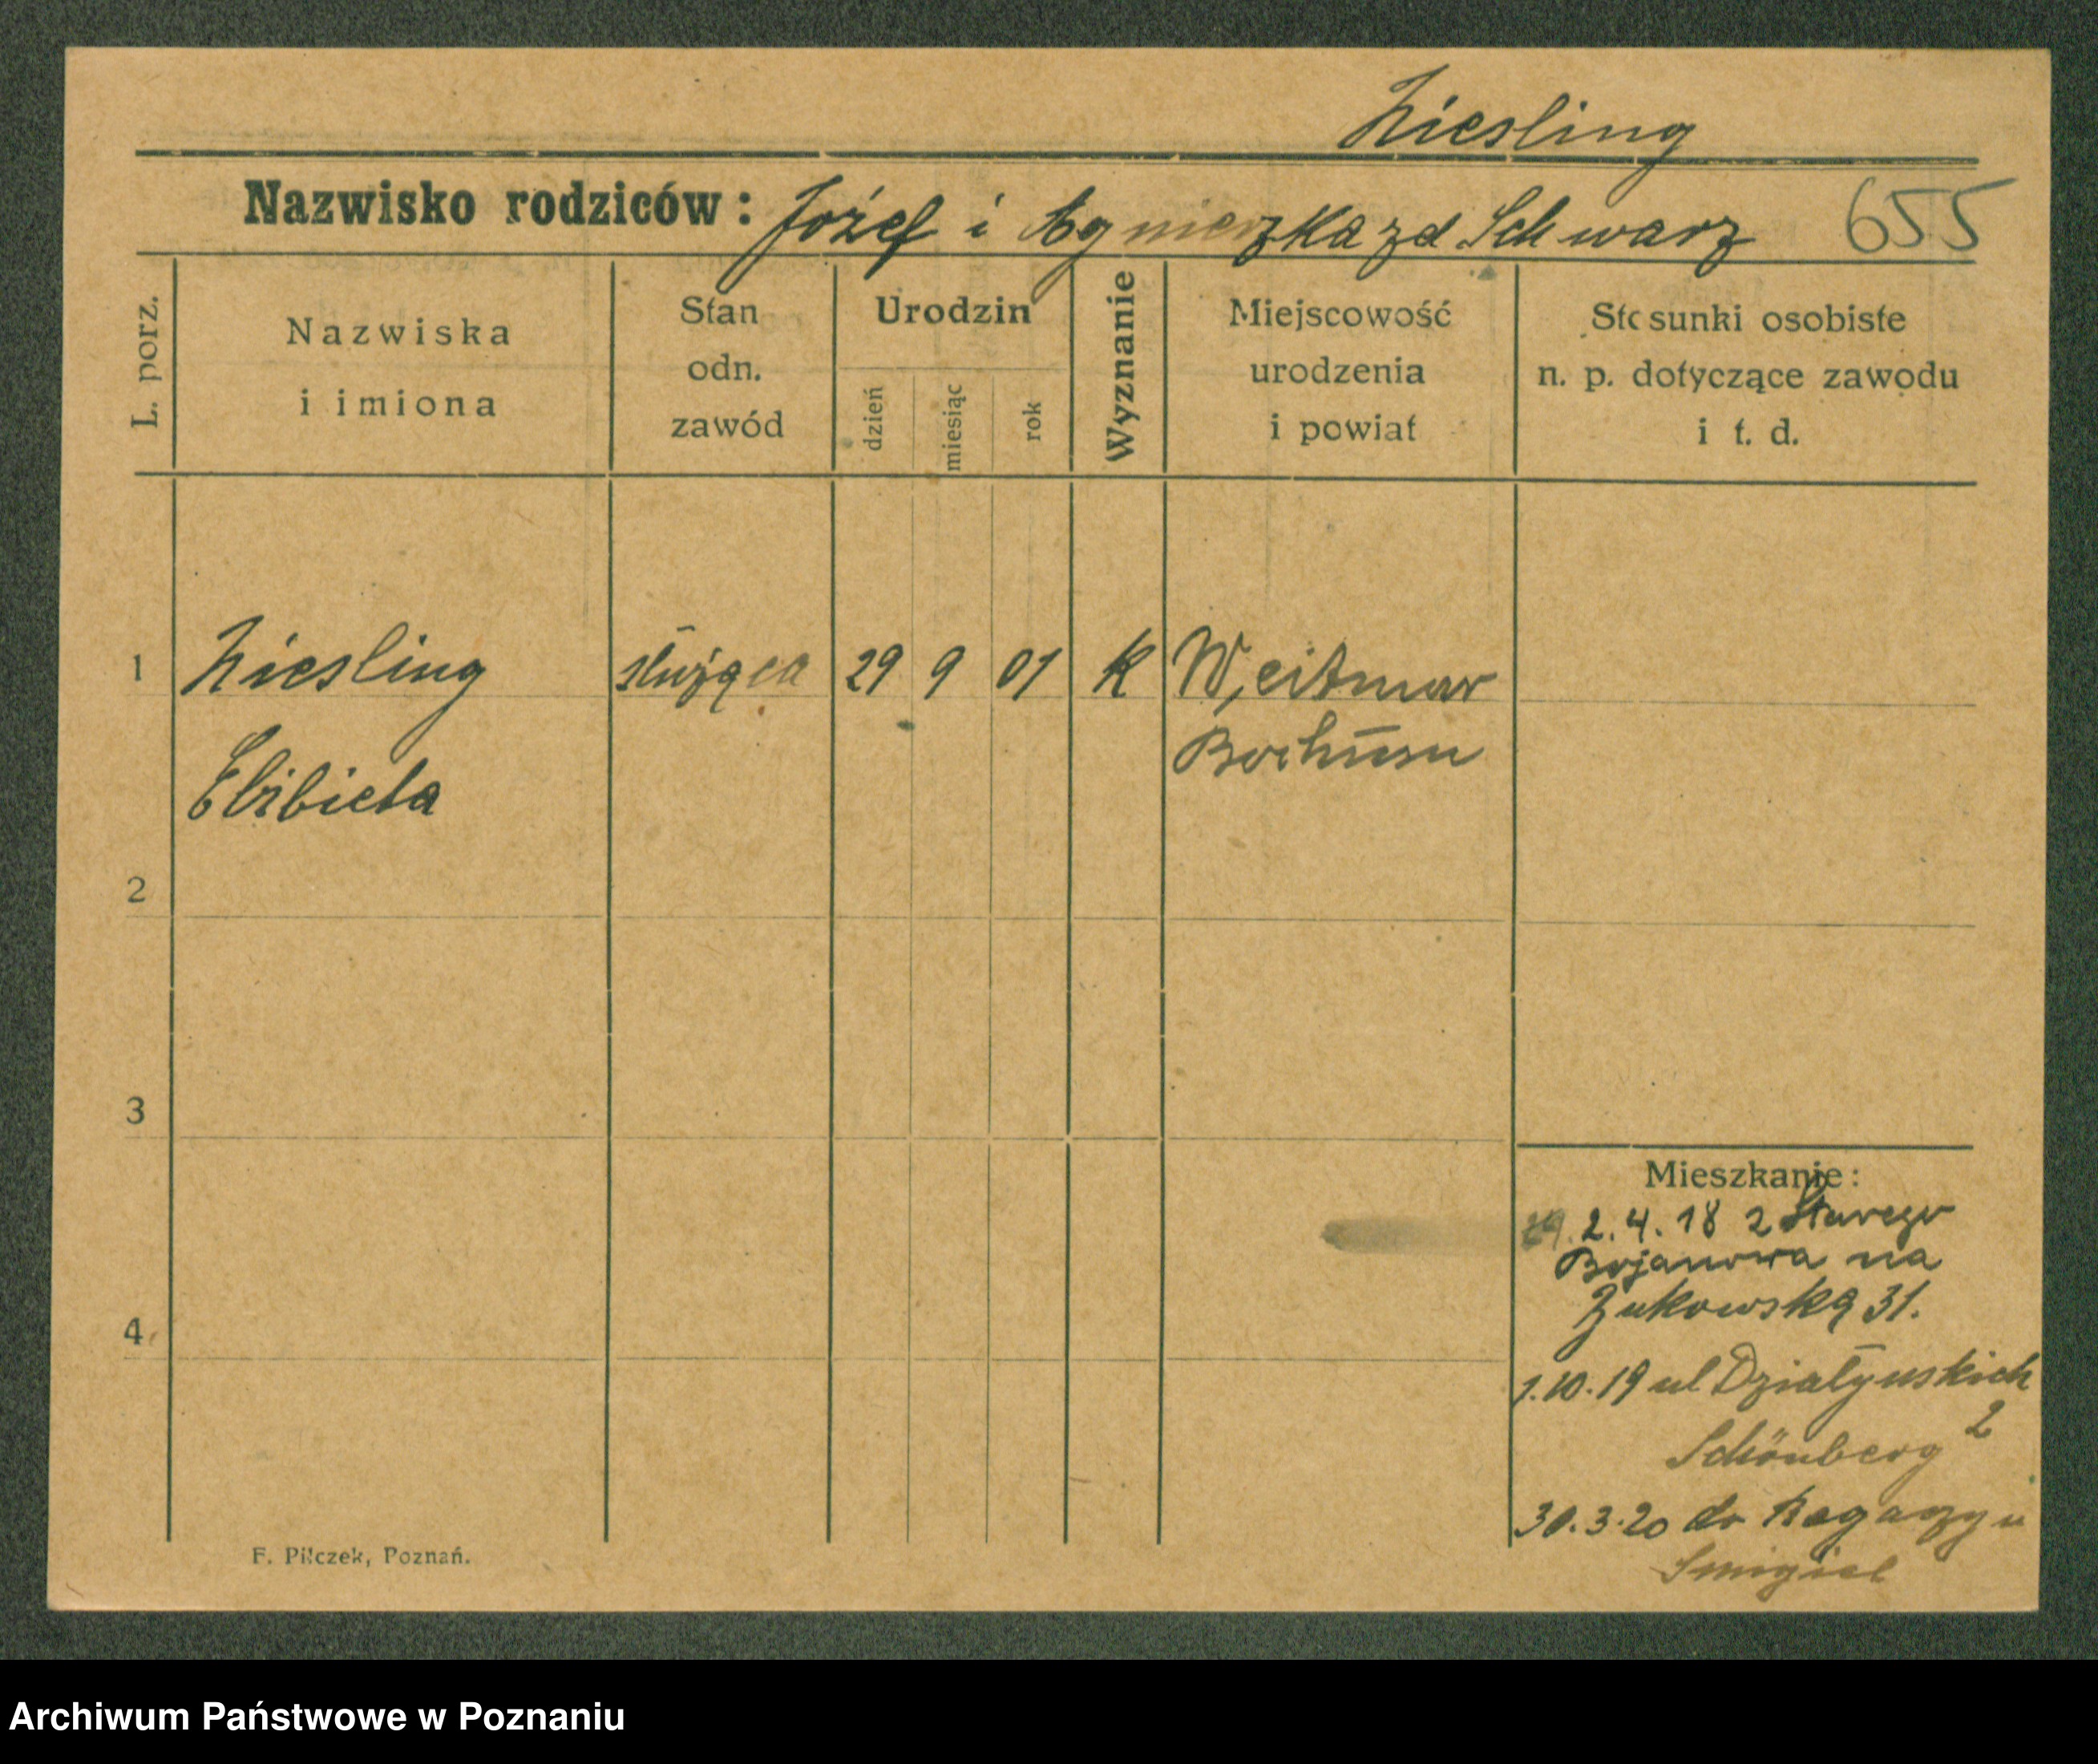 Kiesling
Nazwisko rodziców: Józef i Agnieszka zd Schwarz 655
L. porz.
Nazwiska
i imiona
Stan
odn.
zawód
Urodzin
dzień
miesiąc
rok
Wyznanie
Miejscowość
urodzenia
i powiat
Stosunki osobiste
n. p. dotyczące zawodu
i t. d.
1 Kiesling służąca 29 9 01 K Weitmar
Elżbieta
2
3
4
Mieszkanie:
2.4.18 z Starego
Bojanowa na
Żukowską 31.
1.10.19 ul Działyńskich
2
Schönberg
30.3.20 do
Smigiel
F. Pilczek, Poznań.
Archiwum Państwowe w Poznaniu